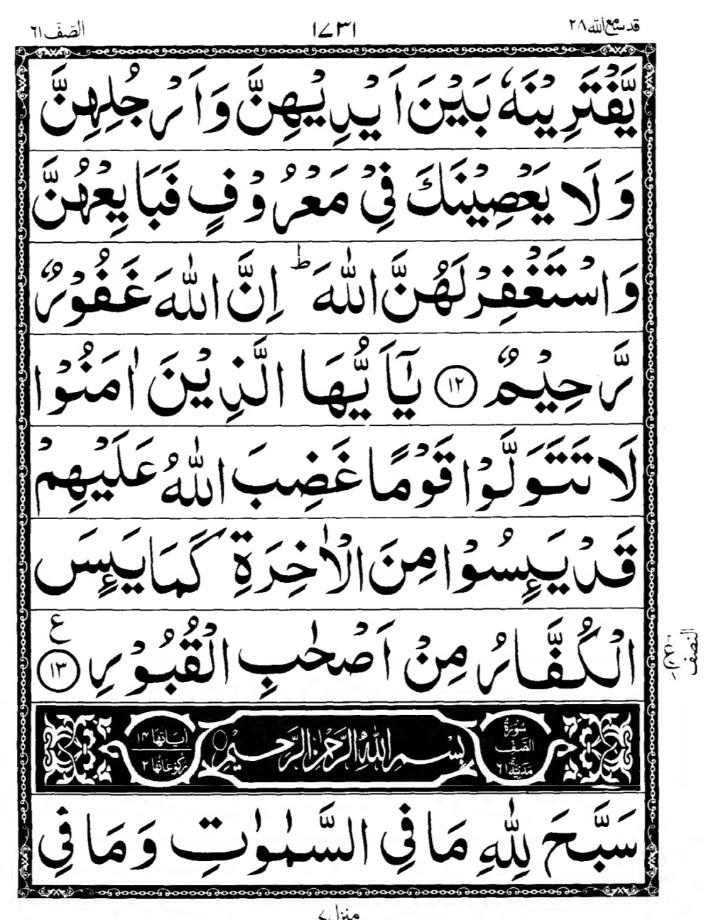 قد سمع الله ٢٨
١٧٣١
الصّفّ ٦١
يَّفْتَرِيْنَهٗ بَيْنَ اَيْدِيْهِنَّ وَاَرْجُلِهِنَّ
وَلَا يَعْصِيْنَكَ فِيْ مَعْرُوْفٍ فَبَايِعْهُنَّ
وَاسْتَغْفِرْ لَهُنَّ اللّٰهَ ؕ اِنَّ اللّٰهَ غَفُوْرٌ
رَّحِيْمٌ ١٢ يٰۤاَيُّهَا الَّذِيْنَ اٰمَنُوْا
لَا تَتَوَلَّوْا قَوْمًا غَضِبَ اللّٰهُ عَلَيْهِمْ
قَدْ يَىِٕسُوْا مِنَ الْاٰخِرَةِ كَمَا يَىِٕسَ
الْكُفَّارُ مِنْ اَصْحٰبِ الْقُبُوْرِ ١٣ ع
النصف
سُوْرَةُ الصَّفِّ مَدَنِيَّةٌ ٦١
بِسْمِ اللّٰهِ الرَّحْمٰنِ الرَّحِيْمِ
اٰيَاتُهَا ١٤
رُكُوْعَاتُهَا ٢
سَبَّحَ لِلّٰهِ مَا فِي السَّمٰوٰتِ وَمَا فِي
منزل ٧